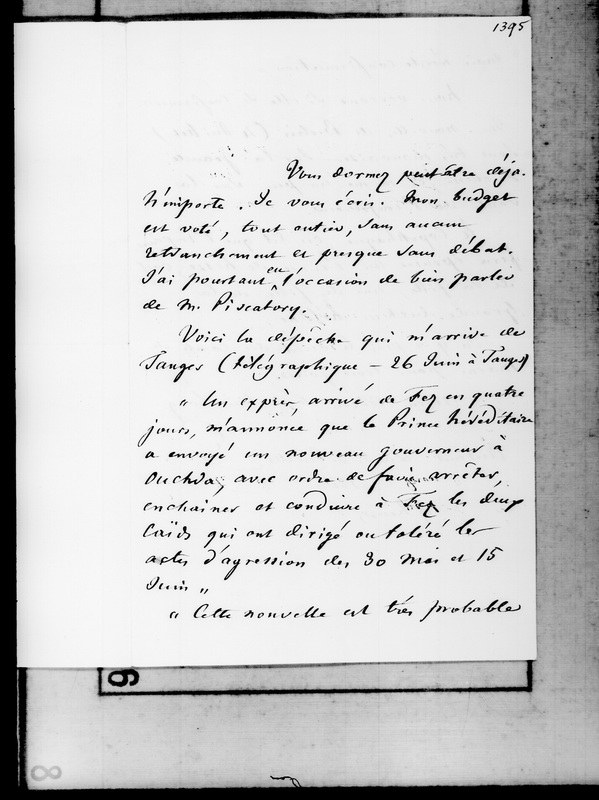 1395
Vous dormez peut-être déjà.
N'importe. Je vous écris. Mon budget
est voté, tout entier, sans aucun
retranchement et presque sans débat.
J'ai pourtant eu l'occasion de bien parler
de M. Piscatory.
Voici la dépêche qui m'arrive de
Tanger (télégraphique - 26 Juin à Tanger)
" Un exprès, arrivé de Fez en quatre
jours, m'annonce que le Prince héréditaire
a envoyé un nouveau gouverneur à
Ouchda, avec ordre de faire arrêter,
enchaîner et conduire à Fez les deux
Caïds qui ont dirigé ou toléré les
actes d'agression des 30 mai et 15
Juin "
" Cette nouvelle est très probable
6
8